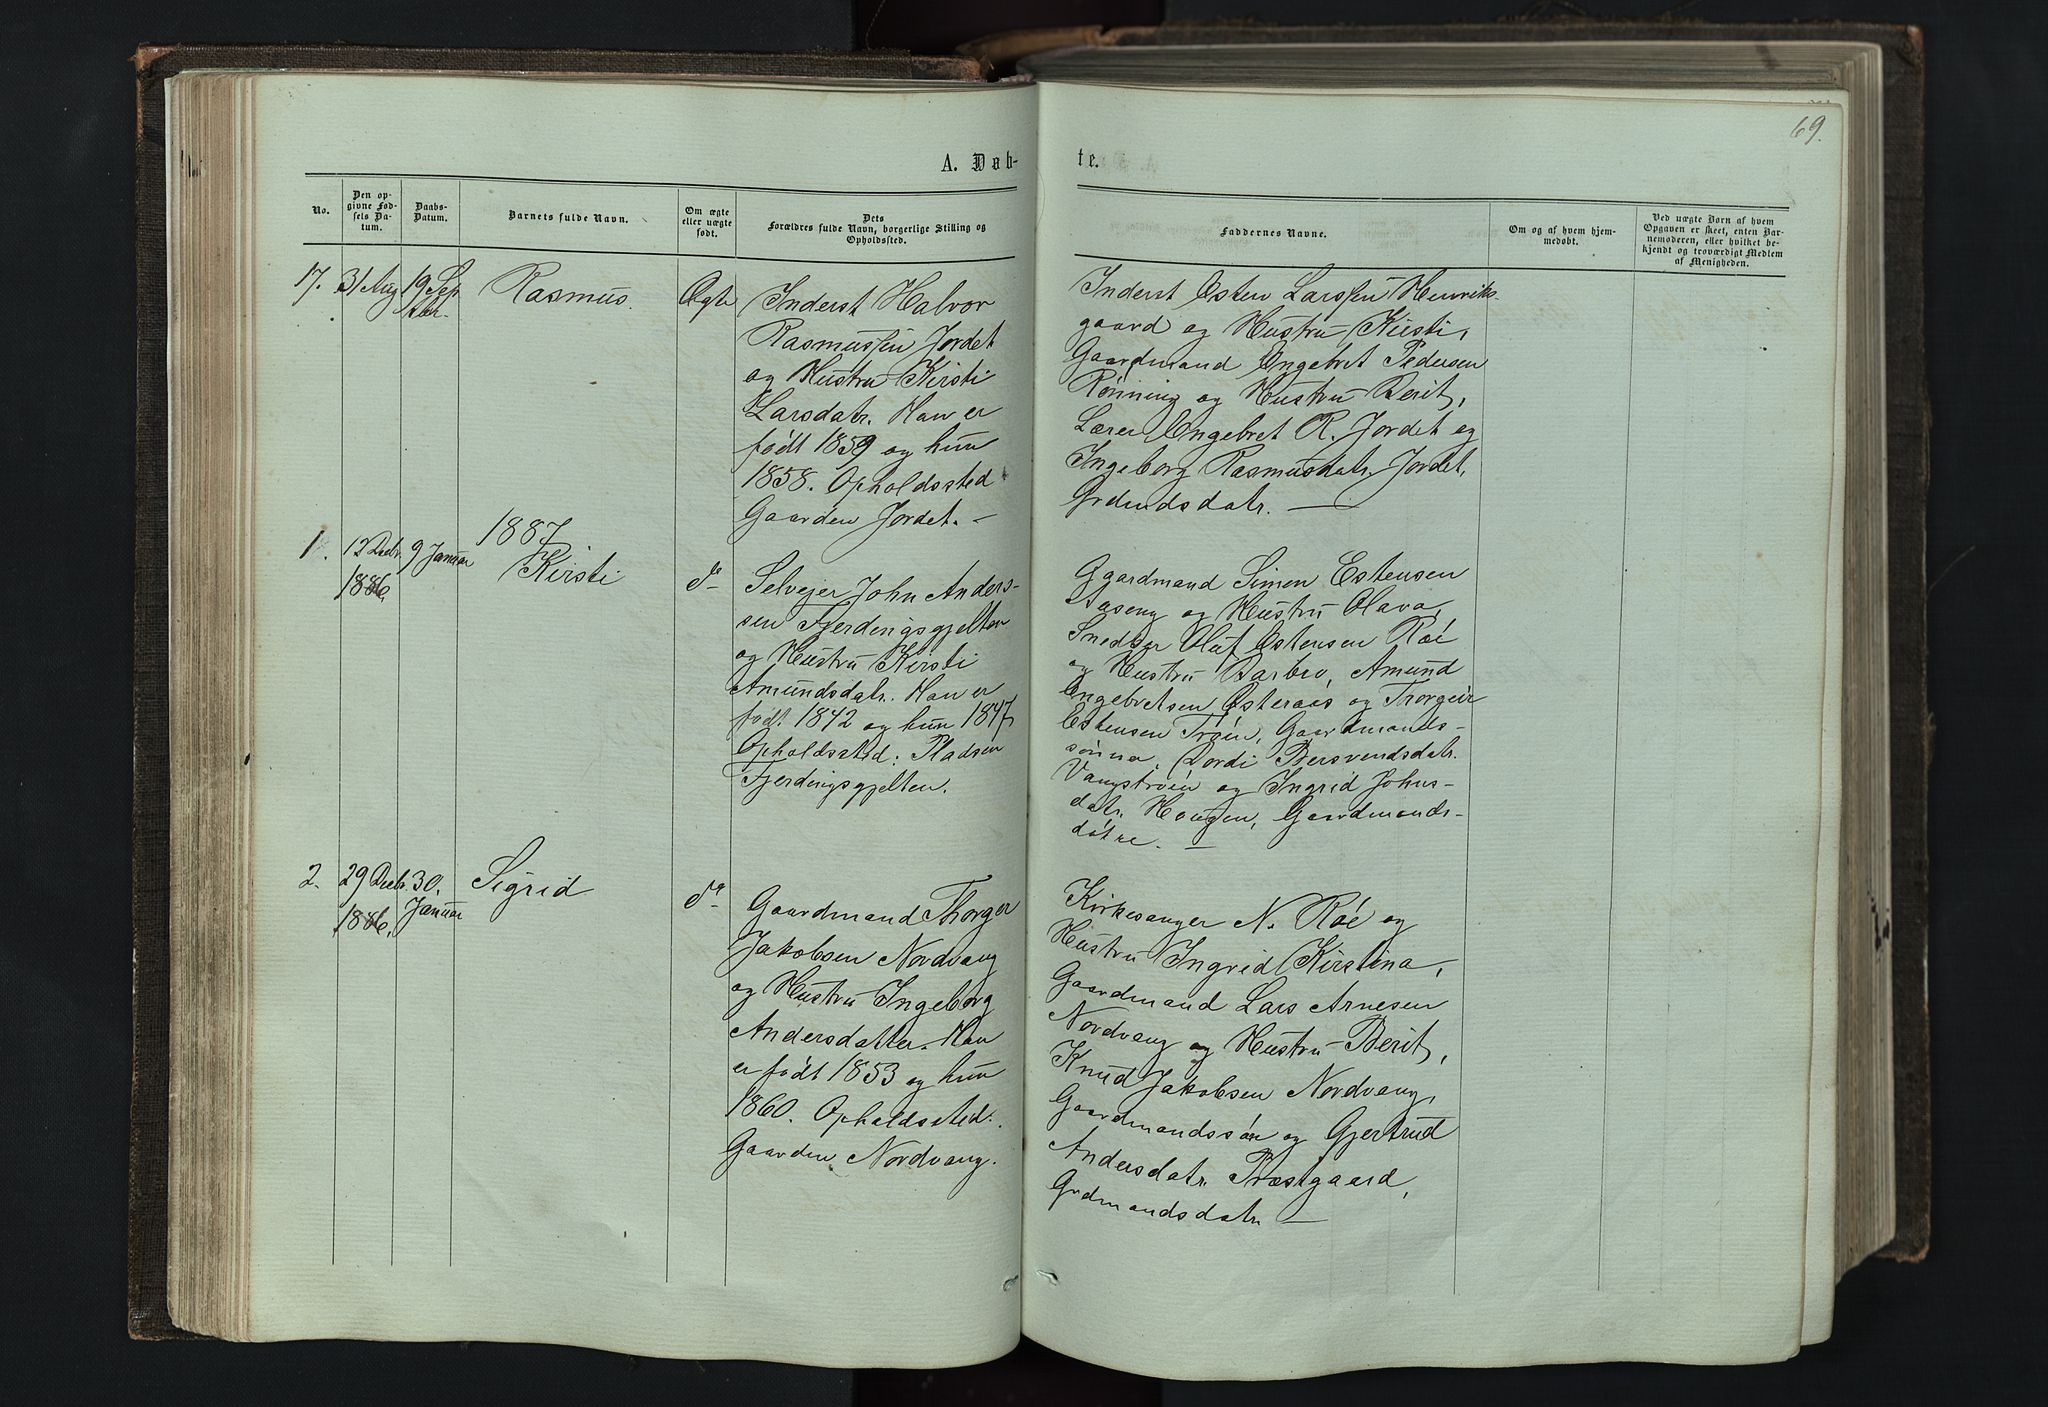 69.
A. Døb-
te.
No.
Den op-
givne Fød-
sels Da-
tum.
Daabs-
Datum.
Barnets fulde Navn.
Om ægte
eller uægte
født.
Dets
Forældres fulde Navn, borgerlige Stilling og
Opholdssted.
Faddernes Navne.
Om og af hvem hjem-
medøbt.
Ved uægte Børn af hvem
Opgaven er skeet, enten Bar-
nemoderen, eller hvilket be-
kjendt og troværdigt Medlem
af Menigheden.
17.
31 Aug
19 Sep
tbr.
Rasmus.
Ægte
Inderst Halvor
Rasmussen Jordet
og Hustru Kirsti
Larsdatr. Han er
født 1859 og hun
1858. Opholdssted
Gaarden Jordet. –
Inderst Esten Larssen Henriks-
gaard og Hustru Kirsti,
Gaardmand Engebret Pedersen
Rønning og Hustru Berit,
Lærer Engebret R. Jordet og
Ingeborg Rasmusdatr. Jordet,
Grdmdsdatr. —
1887
1.
12 Decbr.
1886.
9 Januar
Kirsti
do
Selvejer John Anders-
sen Fjerdingsgjelten
og Hustru Kirsti
Amundsdatr. Han er
født 1842 og hun 1847
Opholdssted: Pladsen
Fjerdingsgjelten.
Gaardmand Simen Estensen
Aaseng og Hustru Olava,
Snedker Oluf Estensen Røe
og Hustru Barbro, Amund
Engebretsen Østeraas og Thorgeir
Estensen Trøen, Gaardmands-
sønner, Dordi Bersvendsdatr.
Vangstrøen og Ingrid Johns-
datr. Hougen, Gaardmands-
døtre. —
2.
29 Decbr.
1886.
30.
Januar
Sigrid
do
Gaardmand Thorger
Jakobsen Nordvang
og Hustru Ingeborg
Andersdatter. Han
er født 1853 og hun
1860. Opholdssted:
Gaarden Nordvang.
Kirkesanger N. Røe og
Hustru Ingrid Kirstina,
Gaardmand Lars Arnesen
Nordvang og Hustru Berit,
Knud Jakobsen Nordvang,
Gaardmandssøn og Gjertrud
Andersdatr. Præstgaard,
Grdmandsdatr —